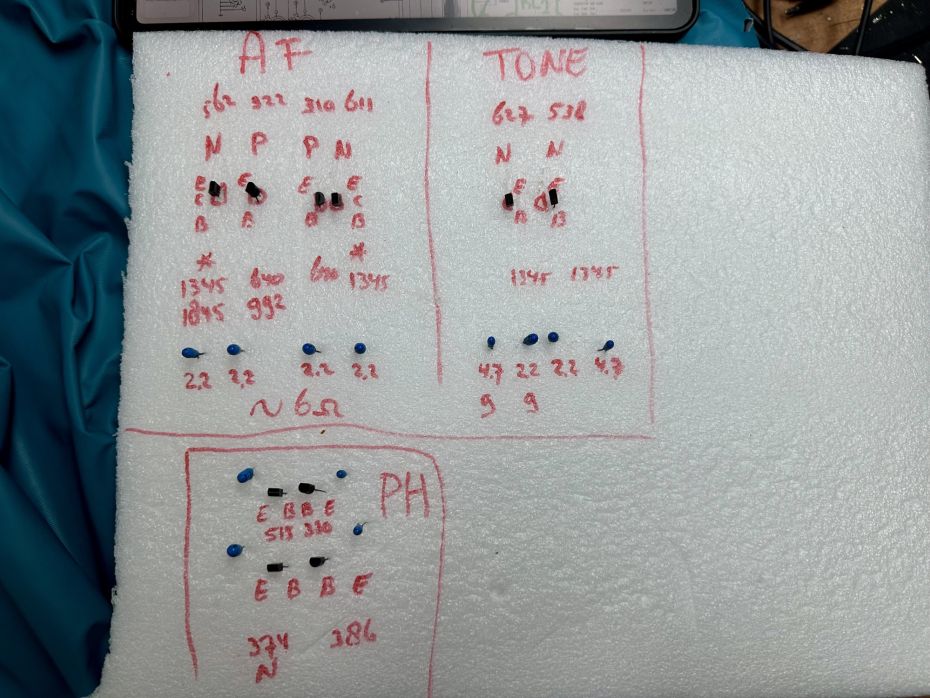 AF
TONE
562 322 310 611
627 538
N P P N
N N
E E E E
C C
B B B B
E E
B B
*
*
1345 640 600 1345
1845 992
1345 1345
2,2 2,2 2,2 2,2
4,7 2,2 2,2 4,7
9 9
~ 6Ω
PH
E B B E
515 330
E B B E
374 386
N